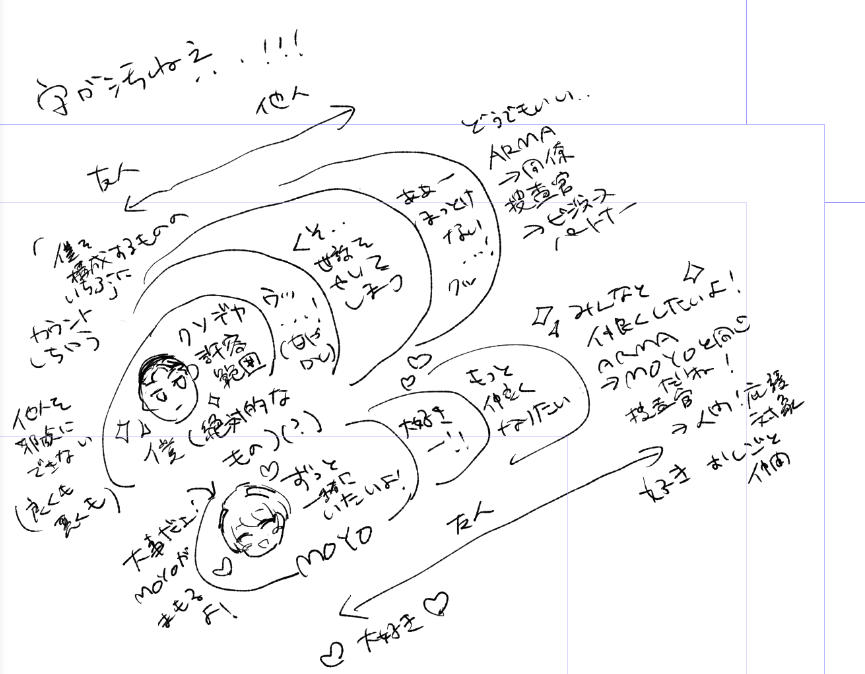 字が汚ねえ...!!!
他人
友人
どうでもいい..
ARMA
→関係
捜査官
→ビジネス
パートナー
ああー
まっとけ
ない
...!
クソ
くそ...
世話を
やいて
しまう
ウッ
...!
「僕を
構成するものの
いちぶに
カウント
しちゃう
クソデカ
許容
範囲
僕(絶対的な
もの)(?)
他人を
邪険に
できない
(良くも
悪くも)
みんなと
仲良くしたいよ!
ARMA
→MOYOと同じ
だね!
捜査官
→人内!応援
対象
好き おしごと
仲間
もっと
仲良く
なりたい
大好き
ー!!
ずっと
一緒に
いたいよ!
MOYO
大事だよ!
MOYOが
まもる
よ!
友人
大好き